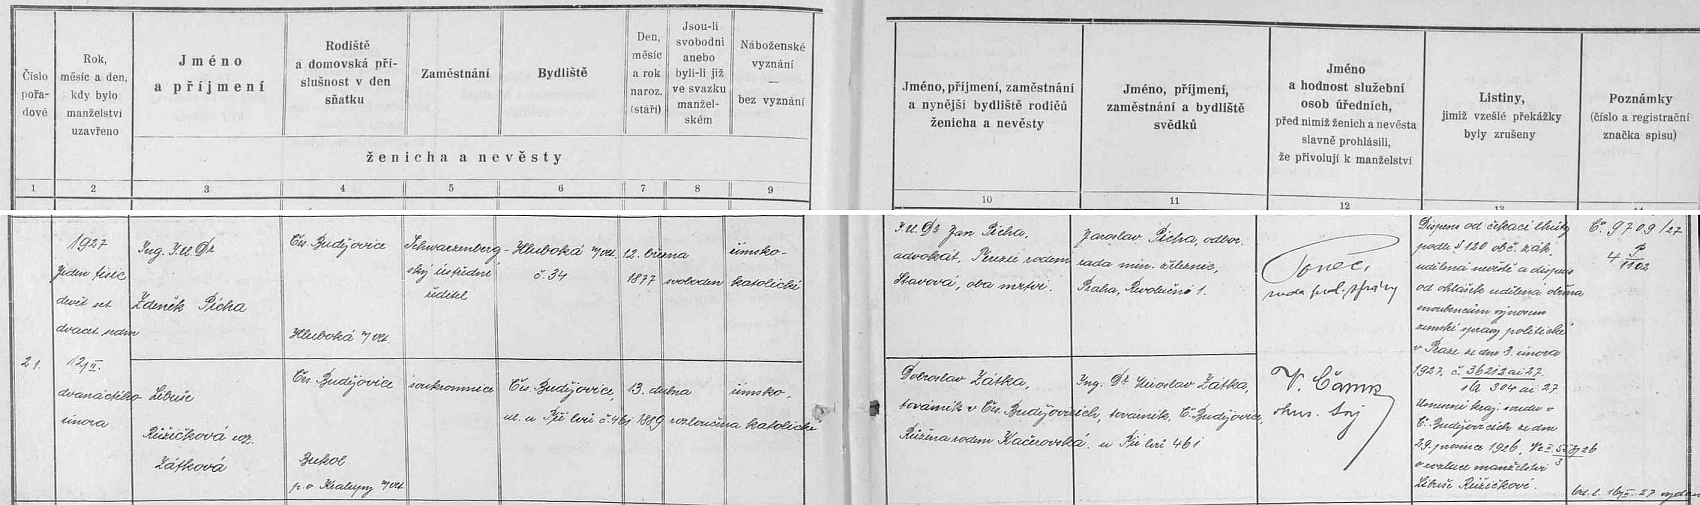 Číslo
pořa-
dové
Rok,
měsíc a den,
kdy bylo
manželství
uzavřeno
Jméno
a příjmení
Rodiště
a domovská pří-
slušnost v den
sňatku
Zaměstnání
Bydliště
Den,
měsíc
a rok
naroz.
(stáří)
Jsou-li
svobodni
anebo
byli-li již
ve svazku
manžel-
ském
Náboženské
vyznání
—
bez vyznání
ženicha a nevěsty
1 2 3 4 5 6 7 8 9
Jméno, příjmení, zaměstnání
a nynější bydliště rodičů
ženicha a nevěsty
Jméno, příjmení,
zaměstnání a bydliště
svědků
Jméno
a hodnost služební
osob úředních,
před nimiž ženich a nevěsta
slavně prohlásili,
že přivolují k manželství
Listiny,
jimiž vzešlé překážky
byly zrušeny
Poznámky
(číslo a registrační
značka spisu)
10 11 12 13
21.
1927
Jeden tisíc
devět set
dvacet sedm
12/II.
dvanáctého
února
Ing. J.U.Dr
Zdeněk Pícha
Čes. Budějovice
Hluboká n/Vlt.
Schwarzenberg-
ský ústřední
ředitel
Hluboká n/Vlt.
č. 34
12. března
1877
svoboden
římsko-
katolické
J.U.Dr Jan Pícha,
advokát, Terezie rodem
oba mrtvi.
Jaroslav Pícha, odbor.
rada min. železnic,
Praha, Revoluční 1.
rada pol. správy
Dispens od čekací lhůty
podle § 120 obč. zák.
udílená nevěstě a dispens
od ohlášek udílená oběma
snoubencům výnosem
zemské správy politické
v Praze ze dne 3. února
1927, č. 36212 ai 27
304 ai 27
Usnesení kraj. soudu v
Č. Budějovicích ze dne
29. prosince 1926,
o rozluce manželství
Libuše Růžičkové.
Č. 9709/27
Libuše
Růžičková roz.
Zátková
Čes. Budějovice
Bukol
p. o Kralupy n/Vlt.
soukromnice
Čes. Budějovice,
ul. u Tří lvů č. 461
13. dubna
1889
rozloučena
římsko-
katolické
Dobroslav Zátka,
továrník v Čes. Budějovicích,
Růžena rodem Kačerovská.
Ing. Dr Miroslav Zátka,
továrník, Č. Budějovice,
u Tří lvů 461